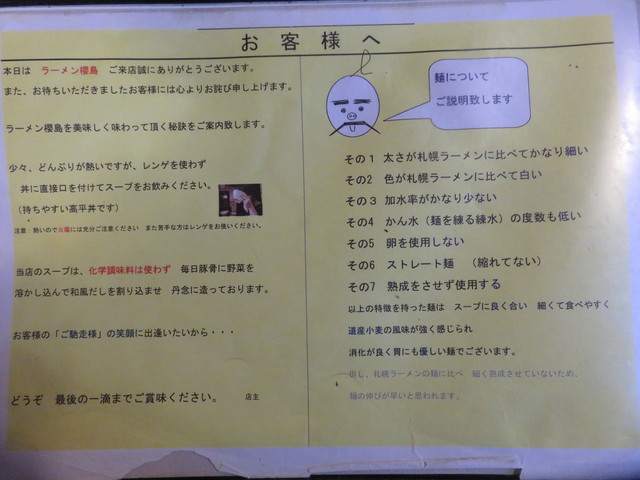 お客様へ
本日は ラーメン櫻島 ご来店誠にありがとうございます。
また、お待ちいただきましたお客様には心よりお詫び申し上げます。
ラーメン櫻島を美味しく味わって頂く秘訣をご案内致します。
少々、どんぶりが熱いですが、レンゲを使わず
丼に直接口を付けてスープをお飲みください。
（持ちやすい高平丼です）
注意：熱いので火傷には充分ご注意ください また苦手な方はレンゲをお使いください。
当店のスープは、化学調味料は使わず 毎日豚骨に野菜を
溶かし込んで和風だしを割り込ませ 丹念に造っております。
お客様の「ご馳走様」の笑顔に出逢いたいから・・・
どうぞ 最後の一滴までご賞味ください。 店主
麺について
ご説明致します
その１ 太さが札幌ラーメンに比べてかなり細い
その2 色が札幌ラーメンに比べて白い
その３ 加水率がかなり少ない
その4 かん水（麺を練る練水）の度数も低い
その5 卵を使用しない
その6 ストレート麺 （縮れてない）
その7 熟成をさせず使用する
以上の特徴を持った麺は スープに良く合い 細くて食べやすく
道産小麦の風味が強く感じられ
消化が良く胃にも優しい麺でございます。
但し、札幌ラーメンの麺に比べ 細く熟成させていないため、
麺の伸びが早いと思われます。